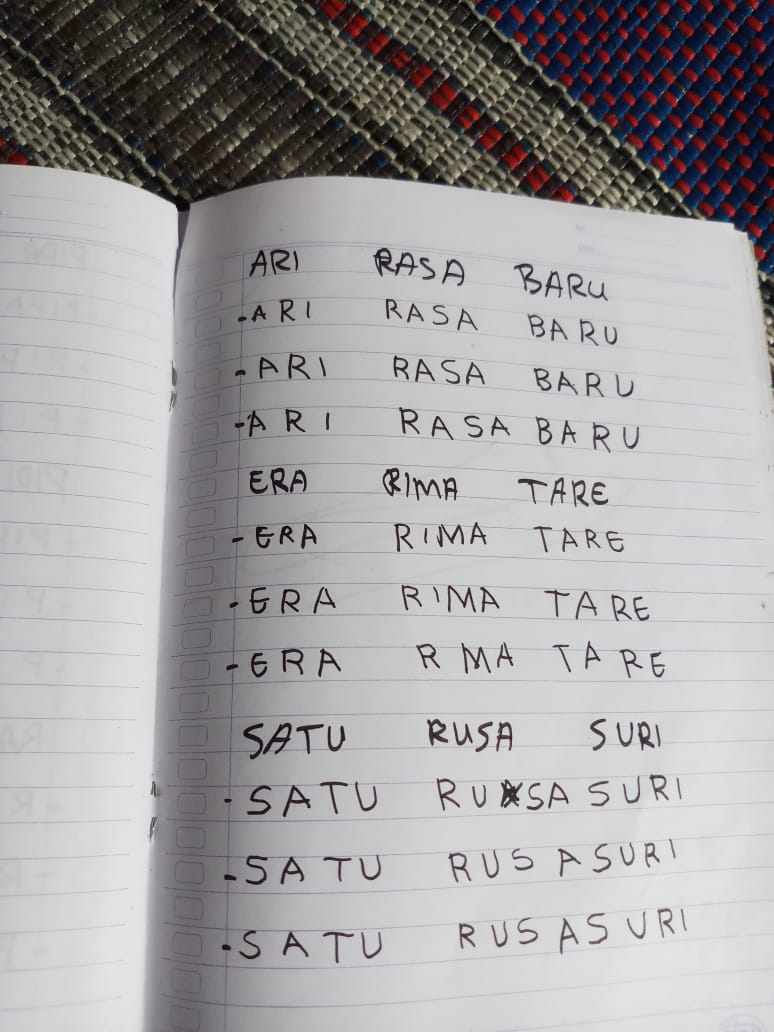 ARI RASA BARU
-ARI RASA BARU
-ARI RASA BARU
-ARI RASA BARU
ERA RIMA TARE
-ERA RIMA TARE
-ERA RIMA TARE
-ERA RMA TARE
SATU RUSA SURI
-SATU RUSA SURI
-SATU RUSASURI
-SATU RUSASURI